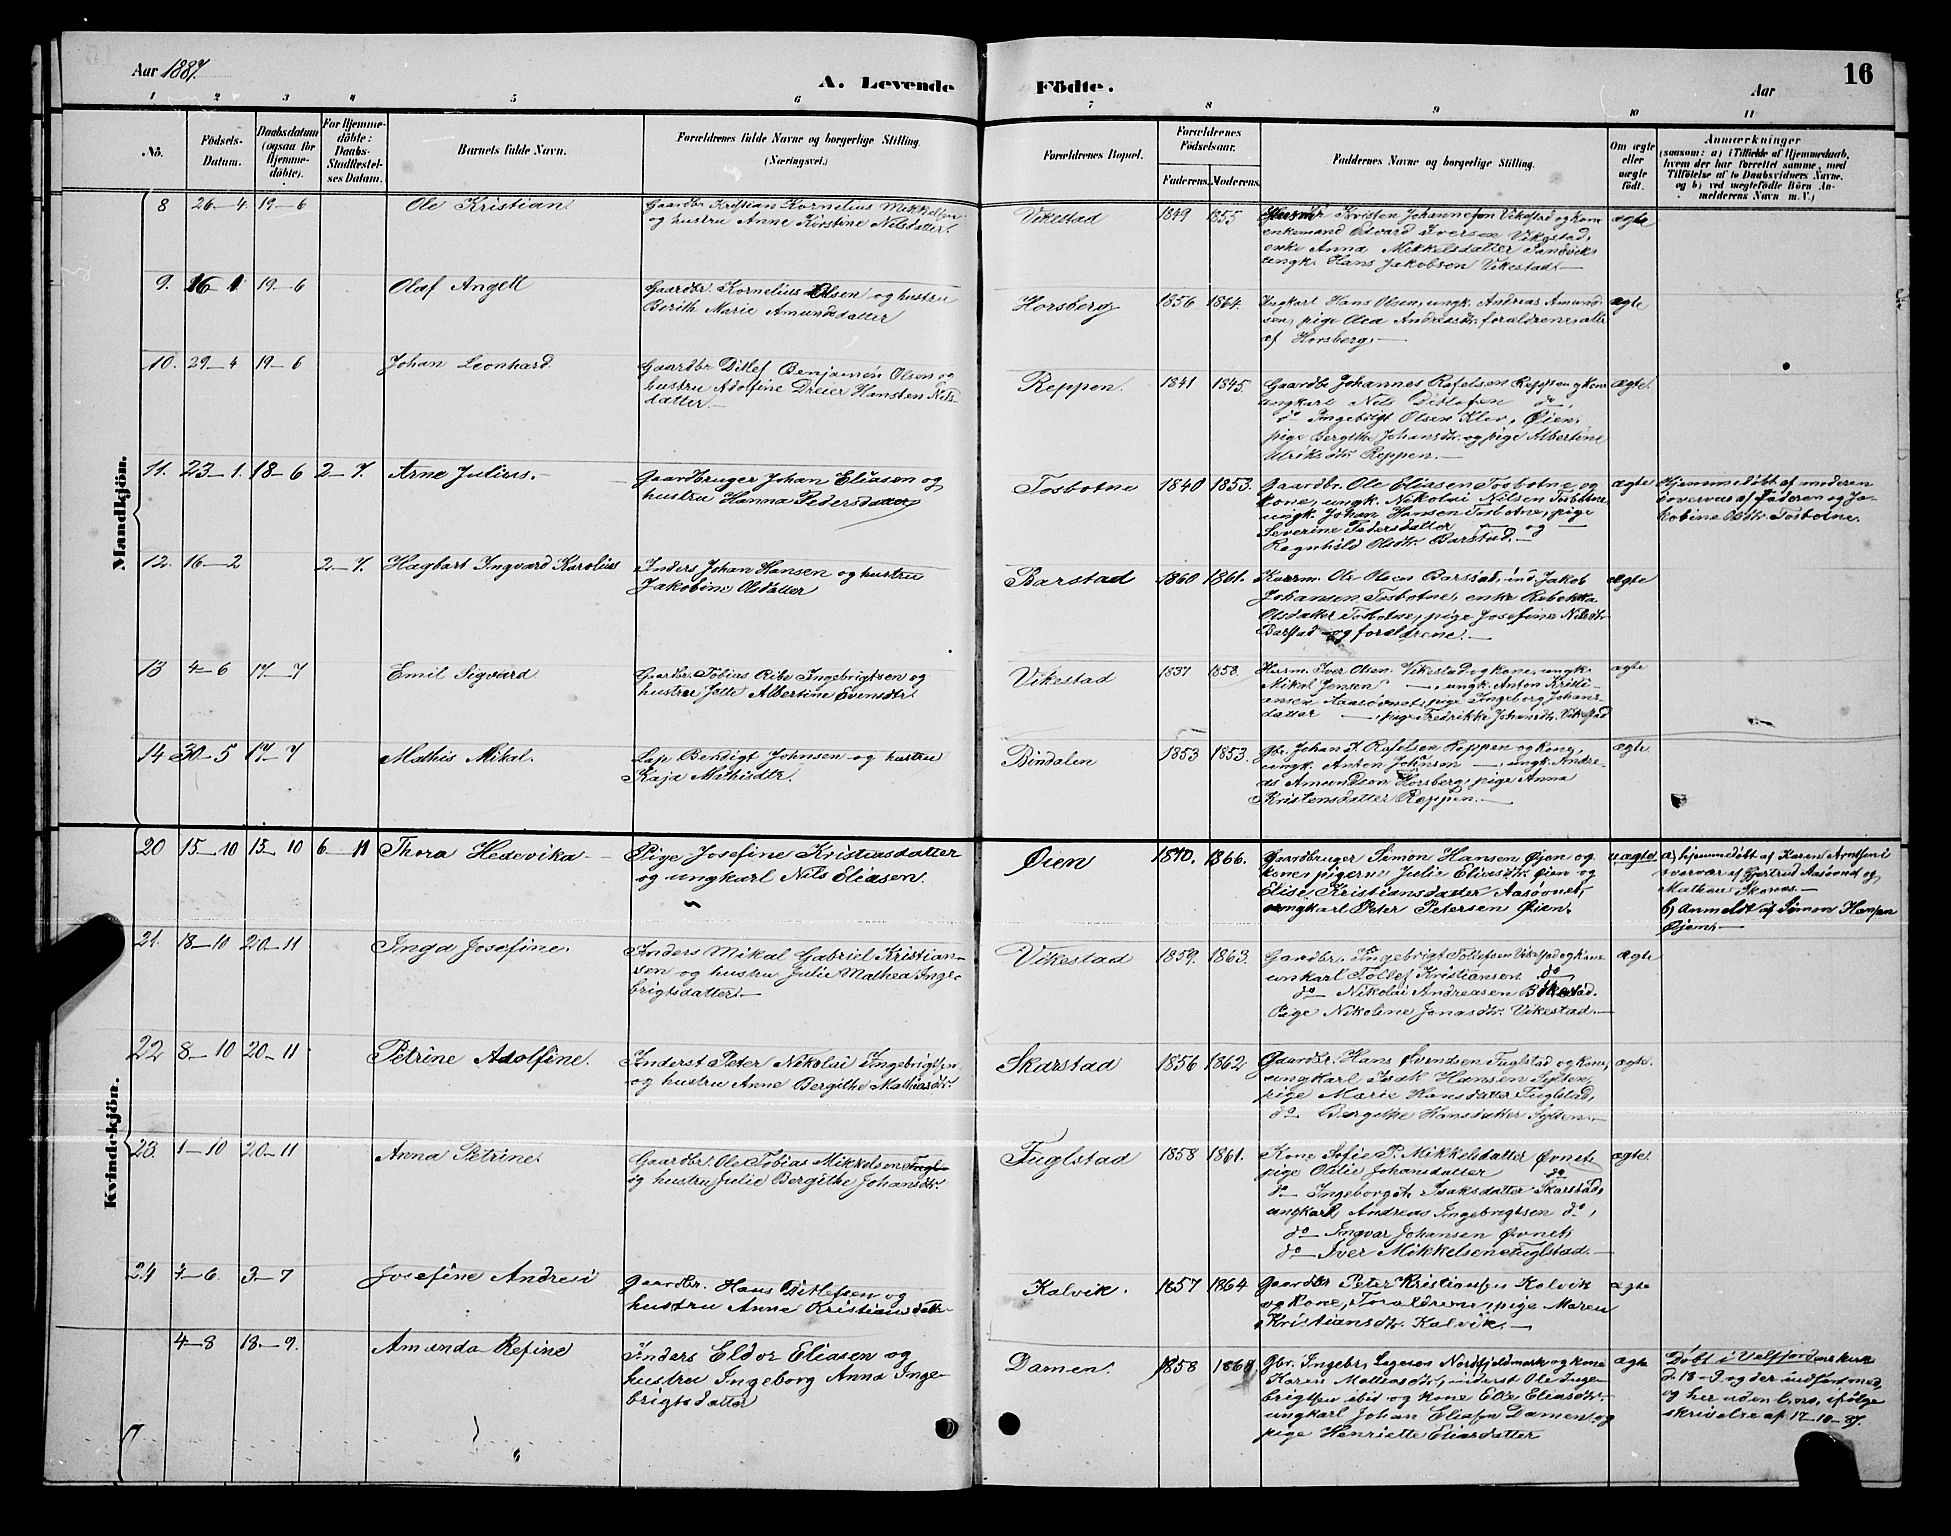 Aar 1887.
A. Levende
Födte.
Aar
16
1 2 3 4 5 6 7 8 9 10 11
No.
Födsels-
Datum.
Daabsdatum
(ogsaa for
Hjemme-
döbte).
For Hjemme-
döbte:
Daabs-
Stadfæstel-
ses Datum.
Barnets fulde Navn.
Forældrenes fulde Navne og borgerlige Stilling.
(Næringsvei.)
Forældrenes Bopæl.
Forældrenes
Födselsaar.
Faderens. Moderens.
Faddernes Navne og borgerlige Stilling.
Om ægte
eller
uægte
födt.
Anmærkninger
(saasom: a) i Tilfælde af Hjemmedaab,
hvem der har forrettet samme, med
Tilföielse af to Daabsvidners Navne,
og b) ved uægtefödte Börn An-
melderens Navn m. V.)
Mandkjön.
8 26-4 19-6 Ole Kristian
Gaardbr. Kristian Kornelius Mikkelsen
og hustru Anne Kirstine Nilsdatter.
Vikestad 1849 1855
Kristen Johannesen Vikestad og kone
enkemand Edvard Iversen Vikestad,
enke Anna Mikkelsdatter Sandvik,
ungk. Hans Jakobsen Vikestad.-
ægte
9. 16-1 19-6 Olaf Angell
Gaardbr. Kornelius Olsen og hustru
Berith Marie Amundsdatter
Horsberg 1856 1864.
Ungkarl Hans Olsen, ungk. Andreas Amund-
sen, pige Olea Andreasdtr. foraldrene, alle
af Horsberg.-
ægte
10. 29-4 19-6 Johan Leonhard
Gaardbr Ditlef Benjamin Olsen og
hustru Adolfine Dreier Hansten Nils-
datter.-
Reppen. 1841 1845.
Gaardbr Johannes Rafelsen Reppen og kone
ungkarl Nils Ditlefsen do,
do Ingebrigt Olsen Klev, Øien,
pige Bergitte Johansdtr. og pige Albertine
Ulriksdtr. Reppen.-
ægte.
11. 23-1. 18-6 2-7. Arne Julius.-
Gaardbruger Johan Eliasen og
hustru Hanna Pedersdatter
Tosbotne 1840 1853.
Gaardbr. Ole Eliasen Tosbotne og
kone, ungk. Nikolai Nilsen Tosbotne
ungk. Johan Hansen Tosbotne, pige
Severine Pedersdatter - og
Ragnhild Olsdtr. Barstad.-
ægte
Hjemmedøbt af moderen
i overvær af Faderen og Ja-
kobine Olsdtr. Tosbotne.
12. 16-2 2-7. Hagbart Ingvard Karolius
Inders. Johan Hansen og hustru
Jakobine Olsdatter
Barstad 1860 1861.
Kaarm. Ole Olsen Barstad, ind. Jakob
Johansen Tosbotne, enke Rebekka
Olsdatter Tosbotne, pige Josefine Nilsdtr.
Barstad og foraldrene.-
ægte
13 4-6 17-7 Emil Sigvard
Gaardbr. Tobias Ribe Ingebrigtsen og
hustru Jelle Albertine Evensdtr.
Vikestad 1837 1858.
Husm. Iver Olsen Vikestad og kone, ungk.
Mikal Jensen -, ungk. Anton Kristi-
ansen Aasøvnet, pige Ingeborg Johans-
datter -, pige Fredrikke Johansdtr. Vikestad
ægte
14 30-5 17-7 Mathis Mikal.
Lap Bendigt Johnsen og hustru
Kaja Mathisdtr.
Bindalen 1853 1853.
Gbr. Johan K. Rafelsen Reppen og kone,
ungk. Anton Johnsen -, ungk. Andre-
as Amundsen Horsberg, pige Anna
Kristensdatter Reppen.-
ægte.
Kvindekjön.
20 15-10 15-10 6-11 Thora Hedevika
Pige Josefine Kristiansdatter
og ungkarl Nils Eliasen.
Øien 1870. 1866.
Gaardbruger Simon Hansen Øien og
kone, pigerne Julie Eliasdtr. Øien og
Elise Kristiansdatter Aasøvnet,
ungkarl Peter Petersen Øien.
uægte
a) hjemmedøbt af Karen Arntsen i
overvær af Gjertrud Aasøvnet og
Mathea Skonas.-
b) Anmeldt af Simon Hansen
Øien.-
21. 18-10 20-11 Inga Josefine.
Inders Mikal Gabriel Kristian-
sen og hustru Julie Mathea Inge-
brigtsdatter.-
Vikestad 1859. 1863.
Gaardbr. Ingebrigt Tollefsen Vikestad og kone
unkarl Tollef Kristiansen do
do Nikolai Andreasen
Pige Nikoline Jonasdtr. Vikestad.-
ægte
22 8-10 20-11 Petrine Adolfine.
Inderst Peter Nikolai Ingebrigtsen
og hustru Anne Bergithe Mathiasdtr.
Skarstad 1856 1862
Gaardbr. Hans Svendsen Fuglstad og kone,
ungkarl Isak Hansen Sylten,
pige Marie Hansdatter Fuglstad,
do Bergithe Hansdatter Sylten.-
ægte.
23. 1-10 20-11 Anna Petrine.
Gaardbr. Ole Tobias Mikkelsen Fugl-
og hustru Julie Bergithe Johansdtr.
Fuglstad 1858 1861.
Kone Sofie P. Mikkelsdatter Øvnet,
pige Oletie Johansdatter do
do Ingeborg A. Isaksdatter Skarstad,
ungkarl Andreas Ingebrigtsen do,
do Ingvar Johansen Øvnet,
do Iver Mikkelsen Fuglstad.-
ægte.
24 7-6. 3-7 Josefine Andresi
Gaardbr. Hans Ditlefsen og
hustru Anne Kristiansdatter
Kalvik. 1857 1864
Gaardbr Peter Kristiansen Kalvik
og Kone, Foraldrene, pige Maren
Kristiansdtr. Kalvik.-
ægte
4-8 18-9. Amanda Refine
Inders Eldor Eliasen og
hustru Ingeborg Anna Inge-
brigtsdatter
Damen. 1858 1860
Gbr. Ingebr. Nordfjeldmark og kone
Karen Matheasdtr, inderst Ole Inge-
brigtsen ibid og kone Elle Eliasdtr.
ungkarl Johan Eliasen Damen og
pige Henriette Eliasdatter
ægte
Døbt i Velfjordens kirke
d. 18-9 og der indført med,
og her uden No, ifølge
skrivelse af 17-10-87.